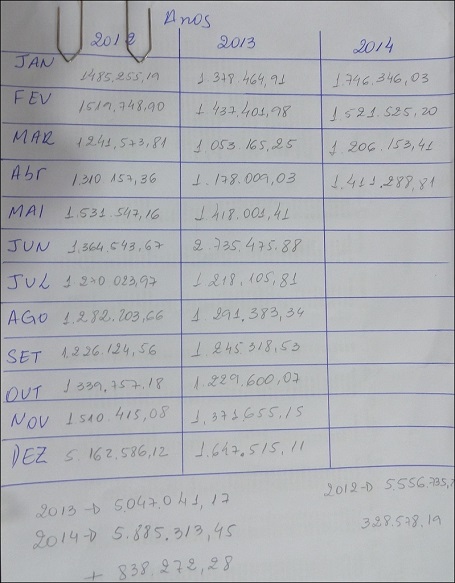 Anos
2012 2013 2014
JAN 1485.255,19 1.378.464,91 1.746.346,03
FEV 1519.748,90 1 437.401,98 1.521.525,20
MAR 1241.573,81 1 053.165,25 1.206.153,41
Abr 1.310.157,36 1.178.009,03 1.411.288,81
MAI 1.531.547,16 1 418.001,41
JUN 1.364.543,67 2.735.475.88
JUL 1 270 023,97 1 218,105,81
AGO 1.282.203,66 1.291.383,34
SET 1.226.124,56 1.245.318,53
OUT 1 339.757.18 1.229.600,07
NOV 1510.415,08 1,371.655,15
DEZ 5.162.586,12 1.647.515,11
2012-D 5.556.735,
2013-D 5.047.041,17
328.578.19
2014-D 5.885.313,45
+ 838.272,28